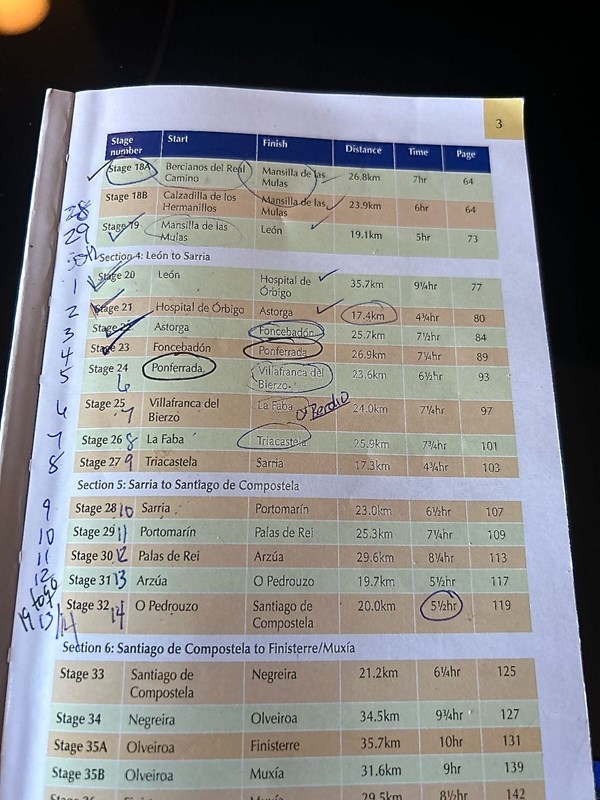 3
Stage number Start Finish Distance Time Page
Stage 18A Bercianos del Real Camino Mansilla de las Mulas 26.8km 7hr 64
28 Stage 18B Calzadilla de los Hermanillos Mansilla de las Mulas 23.9km 6hr 64
29 Stage 19 Mansilla de las Mulas León 19.1km 5hr 73
Section 4: León to Sarria
1 Stage 20 León Hospital de Órbigo 35.7km 9¼hr 77
2 Stage 21 Hospital de Órbigo Astorga 17.4km 4¾hr 80
3 Stage 22 Astorga Foncebadón 25.7km 7½hr 84
4 Stage 23 Foncebadón Ponferrada 26.9km 7¼hr 89
5 Stage 24 6 Ponferrada Villafranca del Bierzo 23.6km 6½hr 93
6 Stage 25 7 Villafranca del Bierzo La Faba 24.0km 7¼hr 97
7 Stage 26 8 La Faba Triacastela 25.9km 7¾hr 101
8 Stage 27 9 Triacastela Sarria 17.3km 4¾hr 103
Section 5: Sarria to Santiago de Compostela
9 Stage 28 10 Sarria Portomarín 23.0km 6½hr 107
10 Stage 29 11 Portomarín Palas de Rei 25.3km 7¼hr 109
11 Stage 30 12 Palas de Rei Arzúa 29.6km 8¼hr 113
12 Stage 31 13 Arzúa O Pedrouzo 19.7km 5½hr 117
13/14 Stage 32 14 O Pedrouzo Santiago de Compostela 20.0km 5½hr 119
Section 6: Santiago de Compostela to Finisterre/Muxía
Stage 33 Santiago de Compostela Negreira 21.2km 6¼hr 125
Stage 34 Negreira Olveiroa 34.5km 9¾hr 127
Stage 35A Olveiroa Finisterre 35.7km 10hr 131
Stage 35B Olveiroa Muxía 31.6km 9hr 139
29.5km 8½hr 142